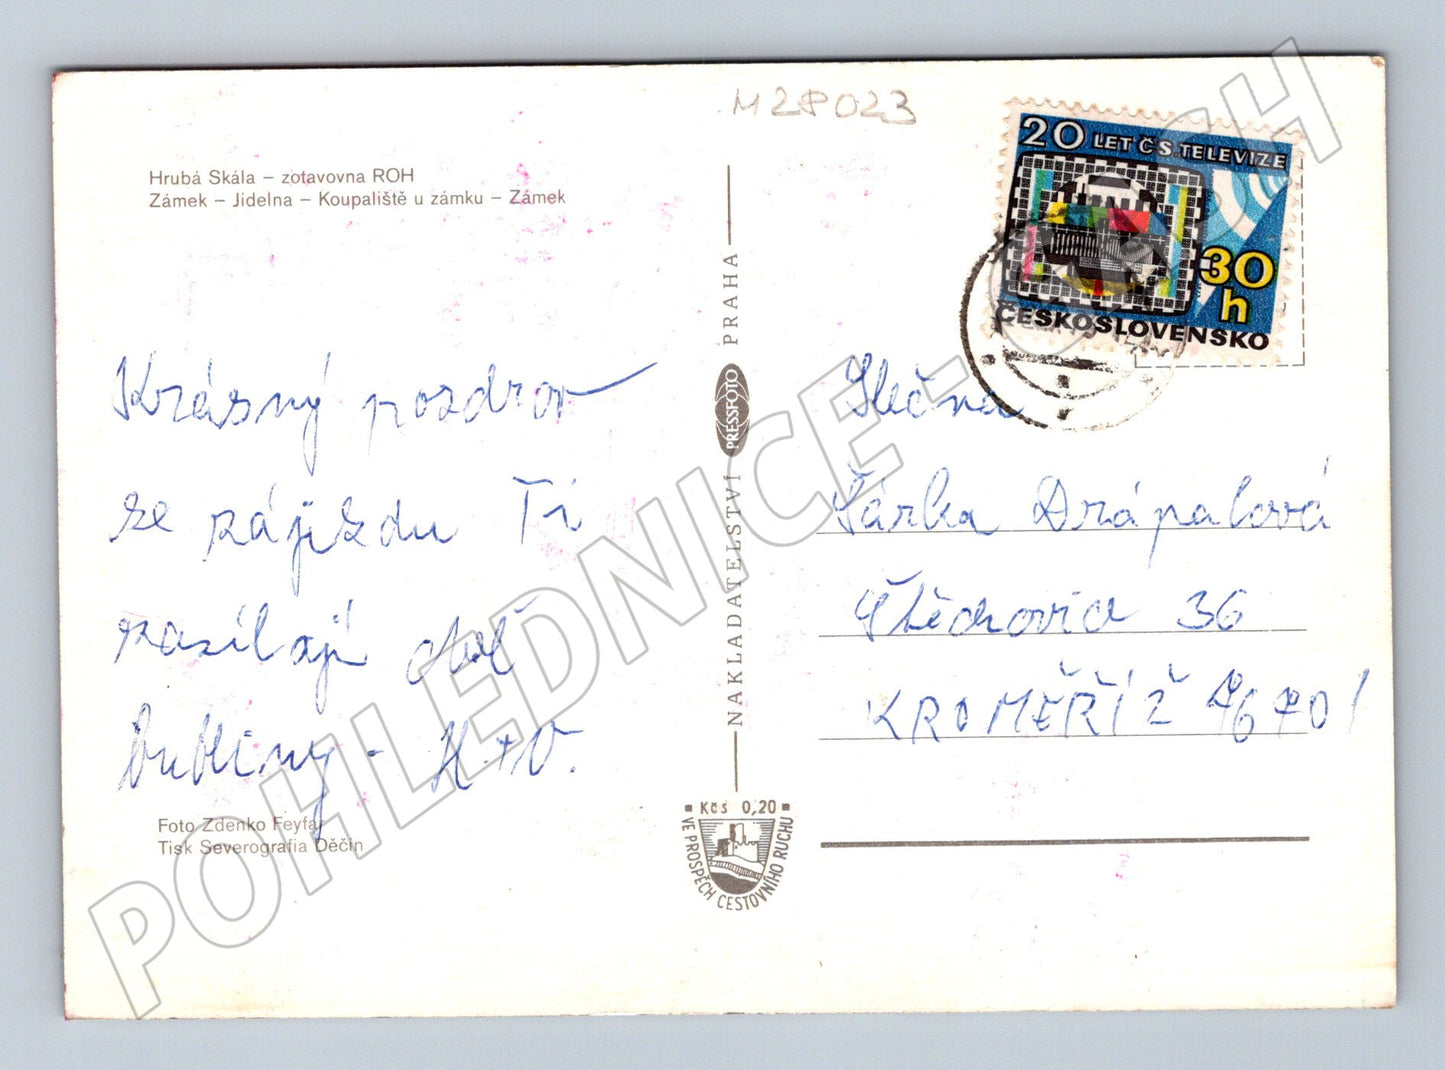 M28023
Hrubá Skála – zotavovna ROH
Zámek – Jídelna – Koupaliště u zámku – Zámek
Krásný pozdrav
ze zájezdu Ti
zasílají obě
Foto Zdenko Feyfar
Tisk Severografia Děčín
NAKLADATELSTVÍ PRESSFOTO PRAHA
Kčs 0,20
VE PROSPĚCH CESTOVNÍHO RUCHU
20 LET ČS TELEVIZE
30
h
ČESKOSLOVENSKO
Slečna
Šárka Drápalová
Štěchovice 36
KROMĚŘÍŽ 76701
POHLEDNICE-CASH